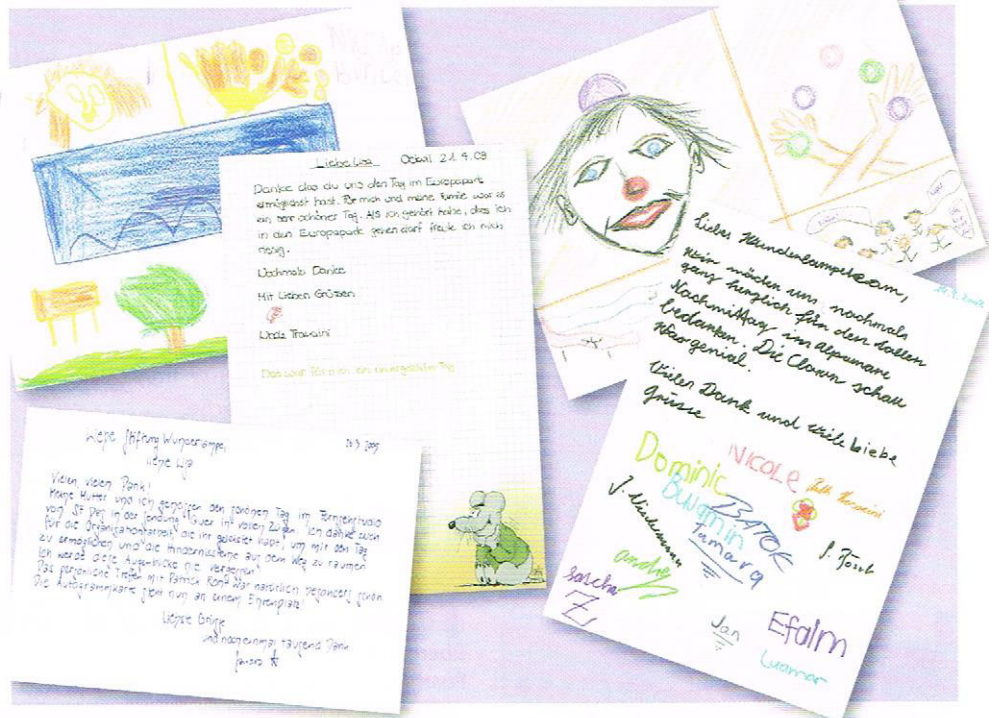 Liebe Lisa Ocbail 21.4.08
Danke das du uns den Tag im Europapark
ermöglichst hast. Für mich und meine Familie war es
ein sehr schöner Tag. Als ich gehört habe, das ich
in den Europapark gehen darf freute ich mich
riesig.
Nochmals Danke
Mit Lieben Grüssen
Das war für mich ein unvergesslicher Tag
Liebe Stiftung Wunderlampe,
liebe Lisa
Vielen, vielen Dank!
Meine Mutter und ich genossen den schönen Tag im Fernsehstudio
von SF bei der Sendung "Quer" in vollen Zügen. Ich danke euch
für die Organisationsarbeit, die ihr geleistet habt, um mir den Tag
zu ermöglichen und die Hindernissteine aus dem Weg zu räumen.
Ich werde diese Augenblicke nie vergessen!
Das persönliche Treffen mit Patrick Rohr war natürlich besonders schön.
Die Autogrammkarte steht nun an einem Ehrenplatz!
Liebe Grüsse
und noch einmal tausend Dank
Liebes Wunderlampeteam,
Wir möchten uns nochmals
ganz herzlich für den tollen
Nachmittag im Alpamare
bedanken. Die Clown schau
war genial.
Vielen Dank und viele liebe
Grüsse
Dominic
NICOLE
Tamara
andrej
Sascha
Z
Jan
Efaim